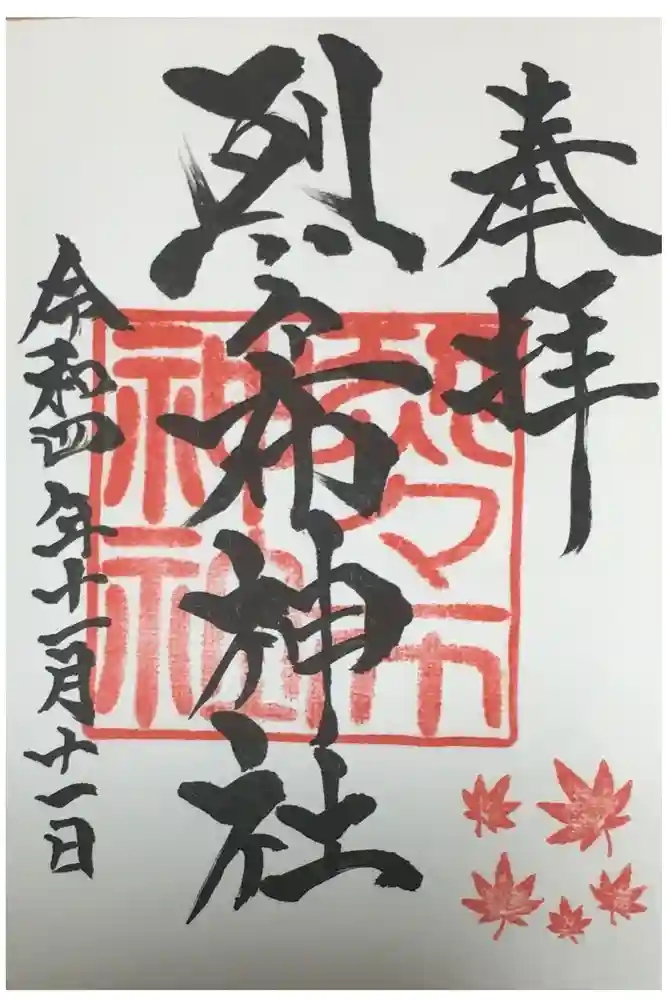 奉拝
烈々布神社
令和四年十一月十一日
烈々布
神社